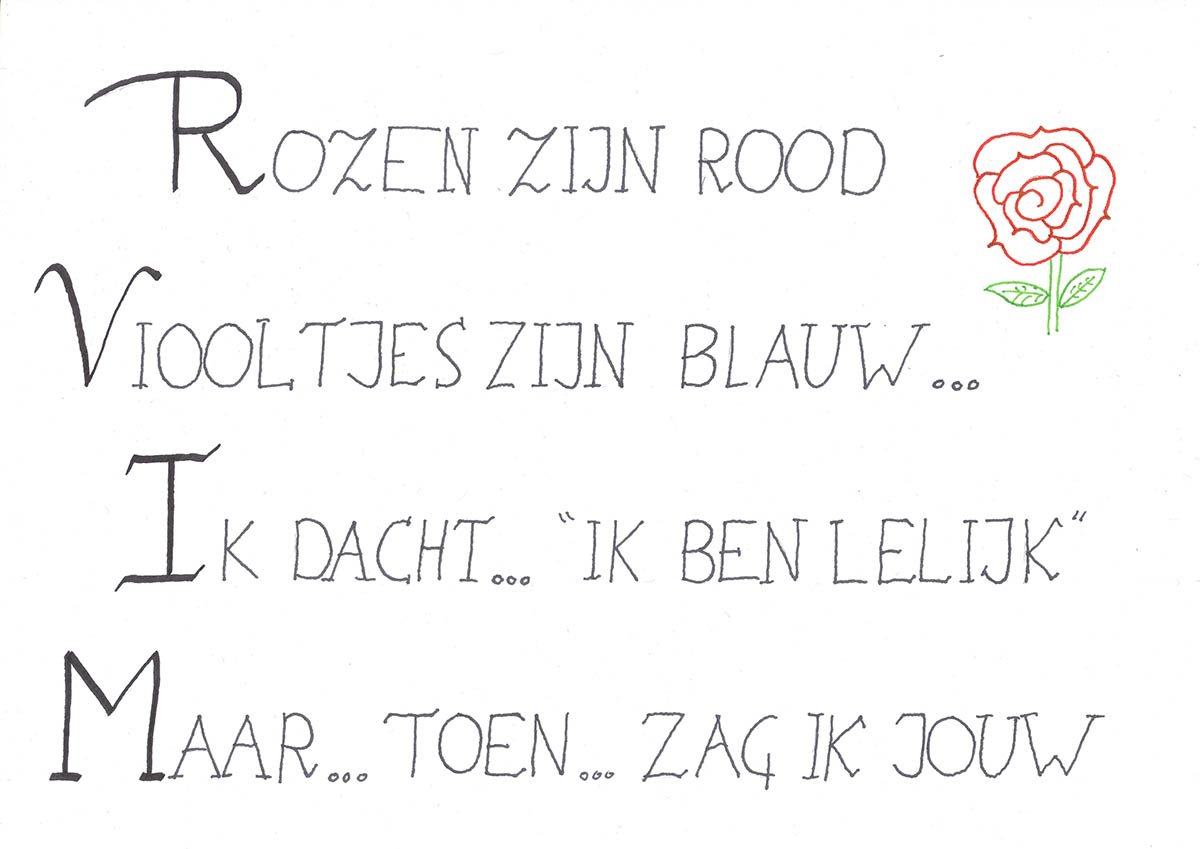 ROZEN ZIJN ROOD
VIOOLTJES ZIJN BLAUW...
IK DACHT... "IK BEN LELIJK"
MAAR... TOEN... ZAG IK JOUW